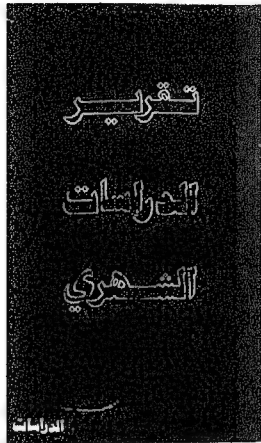 تقرير
الدراسات
الشهري
الدراسات